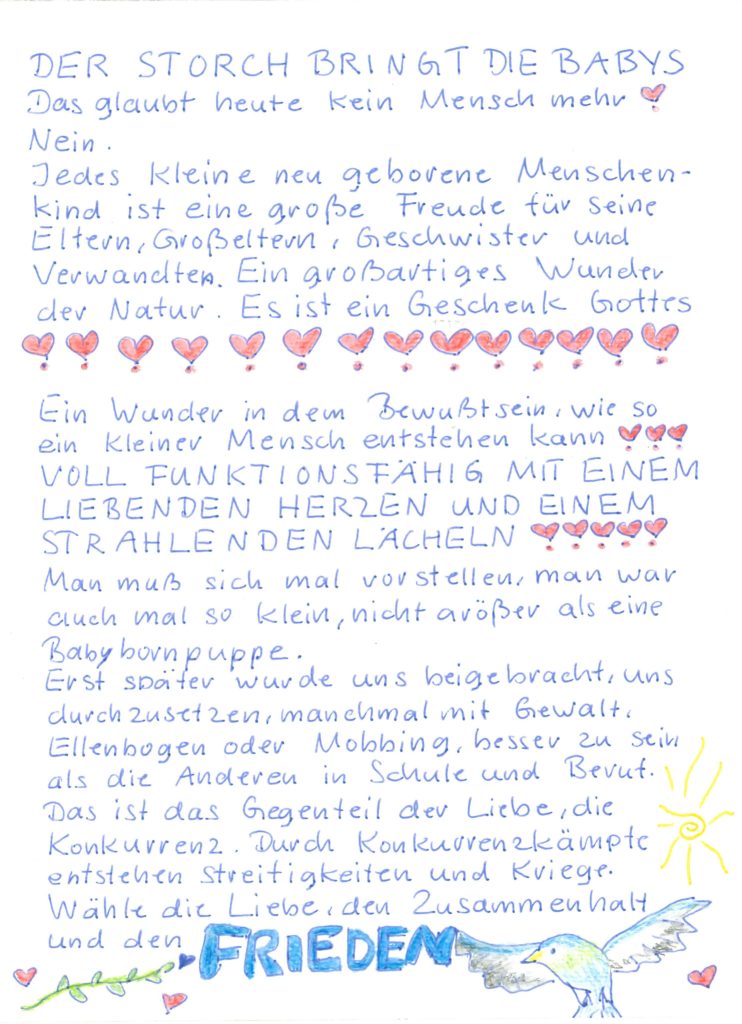 DER STORCH BRINGT DIE BABYS
Das glaubt heute kein Mensch mehr
Nein.
Jedes kleine neu geborene Menschen-
kind ist eine große Freude für seine
Eltern, Großeltern, Geschwister und
Verwandten. Ein großartiges Wunder
der Natur. Es ist ein Geschenk Gottes
Ein Wunder in dem Bewußtsein, wie so
ein kleiner Mensch entstehen kann
VOLL FUNKTIONSFÄHIG MIT EINEM
LIEBENDEN HERZEN UND EINEM
STRAHLENDEN LÄCHELN
Man muß sich mal vorstellen, man war
auch mal so klein, nicht größer als eine
Babybornpuppe.
Erst später wurde uns beigebracht, uns
durchzusetzen, manchmal mit Gewalt,
Ellenbogen oder Mobbing, besser zu sein
als die Anderen in Schule und Beruf.
Das ist das Gegenteil der Liebe, die
Konkurrenz. Durch Konkurrenzkämpfe
entstehen Streitigkeiten und Kriege.
Wähle die Liebe, den Zusammenhalt
und den FRIEDEN